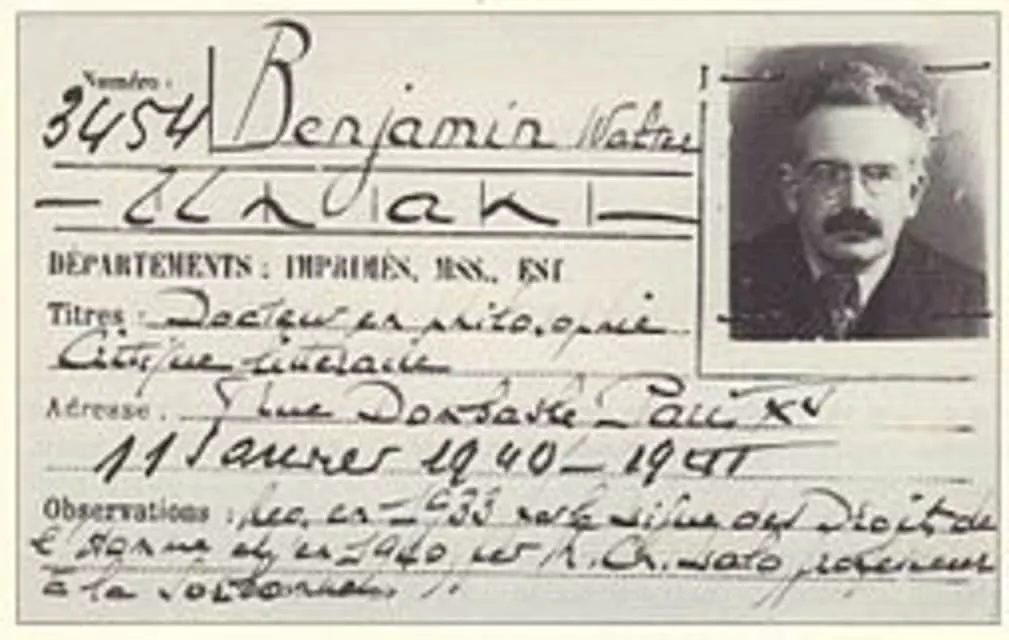 Numéro :
3454 Benjamin Walter
— Un an —
DÉPARTEMENTS : IMPRIMÉS, MSS., EST
Titres : Docteur en philosophie
Critique littéraire
Adresse : rue Dombasle Paris XV
11 Janvier 1940 – 1941
Observations : en 1933 par la Ligue des Droits de
l'Homme et en 1940 par professeur
à la Sorbonne